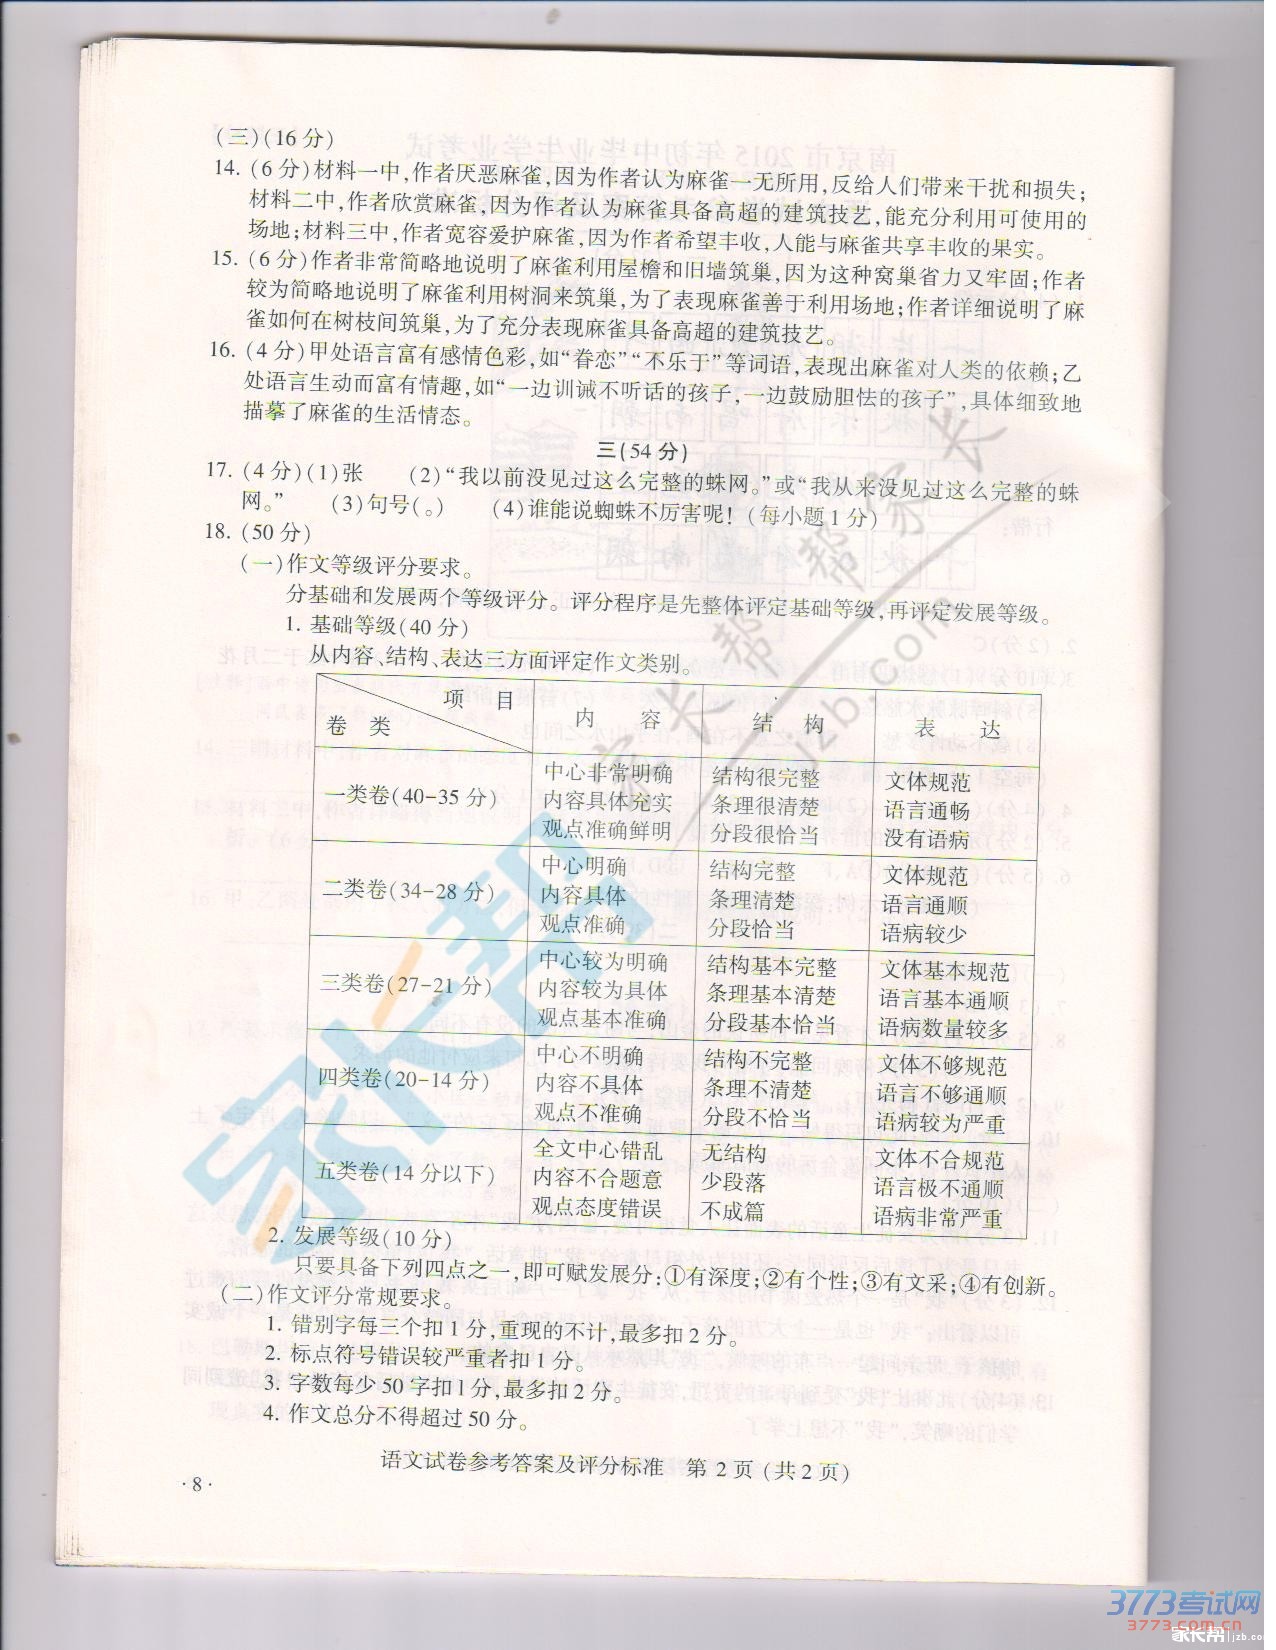 (三)(16 分)
14. (6 分)材料一中,作者厌恶麻雀,因为作者认为麻雀一无所用,反给人们带来干扰和损失;
材料二中,作者欣赏麻雀,因为作者认为麻雀具备高超的建筑技艺,能充分利用可使用的
场地;材料三中,作者宽容爱护麻雀,因为作者希望丰收,人能与麻雀共享丰收的果实。
15. (6 分)作者非常简略地说明了麻雀利用屋檐和旧墙筑巢,因为这种窝巢省力又牢固;作者
较为简略地说明了麻雀利用树洞来筑巢,为了表现麻雀善于利用场地;作者详细说明了麻
雀如何在树枝间筑巢,为了充分表现麻雀具备高超的建筑技艺。
16. (4 分)甲处语言富有感情色彩,如“眷恋”“不乐于”等词语,表现出麻雀对人类的依赖;乙
处语言生动而富有情趣,如“一边训诫不听话的孩子,一边鼓励胆怯的孩子”,具体细致地
描摹了麻雀的生活情态。
三(54 分)
17. (4 分)(1)张 (2)“我以前没见过这么完整的蛛网。”或“我从来没见过这么完整的蛛
网。” (3)句号(。) (4)谁能说蜘蛛不厉害呢! (每小题 1 分)
18. (50 分)
(一)作文等级评分要求。
分基础和发展两个等级评分。评分程序是先整体评定基础等级,再评定发展等级。
1. 基础等级(40 分)
从内容、结构、表达三方面评定作文类别。
项 目
卷 类
内 容 结 构 表 达
一类卷(40-35 分)
中心非常明确 结构很完整 文体规范
内容具体充实 条理很清楚 语言通畅
观点准确鲜明 分段很恰当 没有语病
二类卷(34-28 分)
中心明确 结构完整 文体规范
内容具体 条理清楚 语言通顺
观点准确 分段恰当 语病较少
三类卷(27-21 分)
中心较为明确 结构基本完整 文体基本规范
内容较为具体 条理基本清楚 语言基本通顺
观点基本准确 分段基本恰当 语病数量较多
四类卷(20-14 分)
中心不明确 结构不完整 文体不够规范
内容不具体 条理不清楚 语言不够通顺
观点不准确 分段不恰当 语病较为严重
五类卷(14 分以下)
全文中心错乱 无结构 文体不合规范
内容不合题意 少段落 语言极不通顺
观点态度错误 不成篇 语病非常严重
2. 发展等级(10 分)
只要具备下列四点之一,即可赋发展分:①有深度;②有个性;③有文采;④有创新。
(二)作文评分常规要求。
1. 错别字每三个扣 1 分,重现的不计,最多扣 2 分。
2. 标点符号错误较严重者扣 1 分。
3. 字数每少 50 字扣 1 分,最多扣 2 分。
4. 作文总分不得超过 50 分。
语文试卷参考答案及评分标准 第 2 页 (共 2 页)
· 8 ·
家长帮
家长帮帮家长
jzb.com
3773考试网
3773.com.cn
家长帮 jzb.com